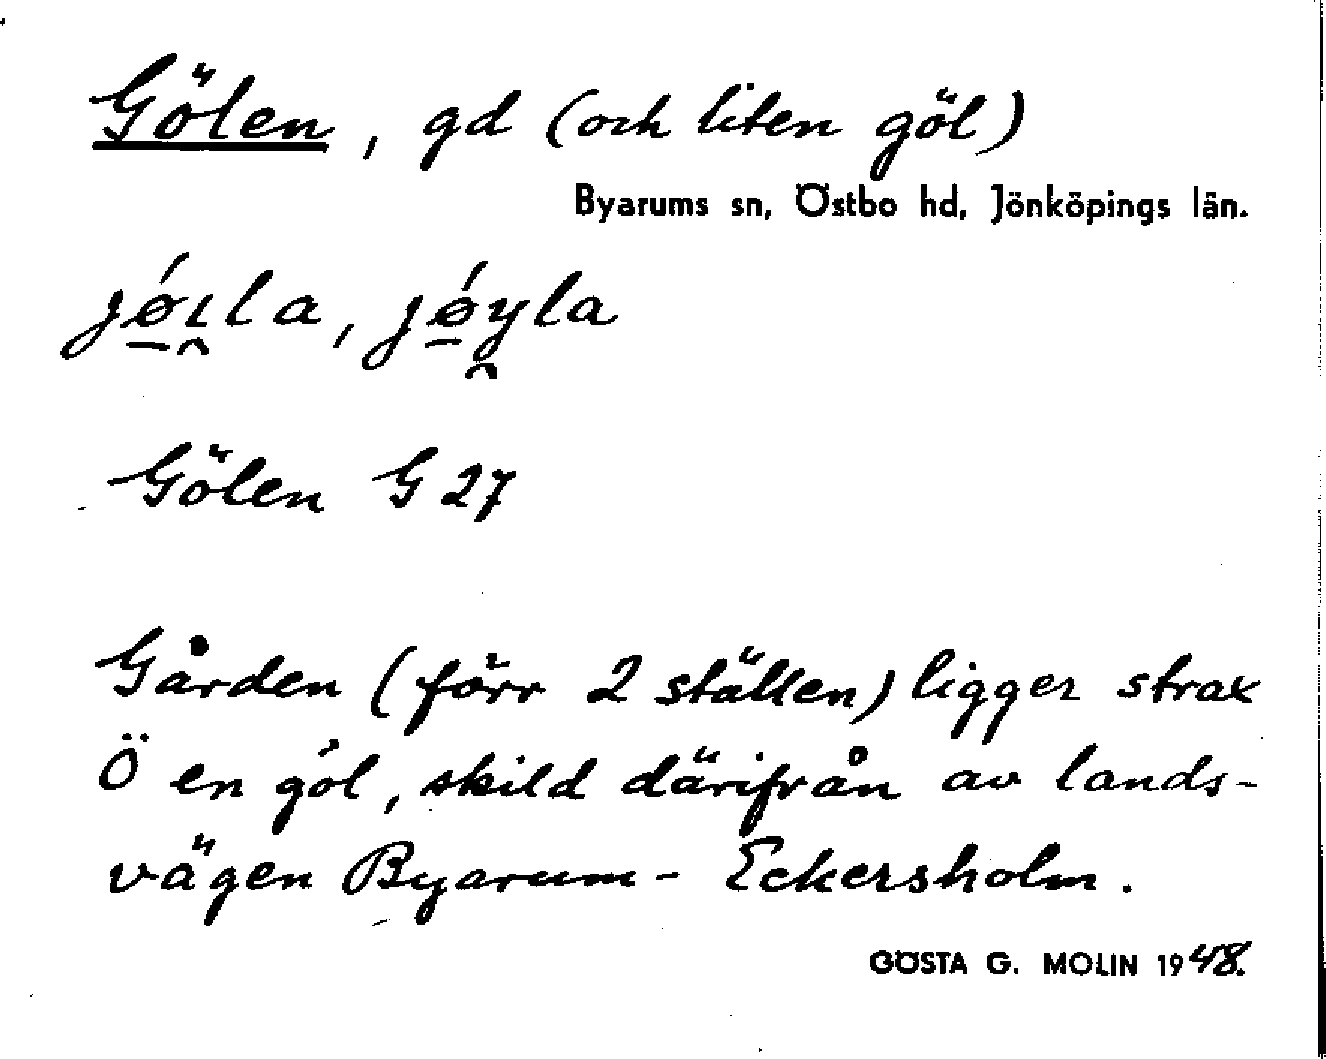 Gölen, gd (och liten göl)
Byarums sn, Östbo hd, Jönköpings län.
jǿ̱ɩ̯la, jǿ̱y̯la
Gölen G 27
Gården (förr 2 ställen) ligger strax
Ö en göl, skild därifrån av lands-
vägen Byarum - Eckersholm.
GÖSTA G. MOLIN 1948.